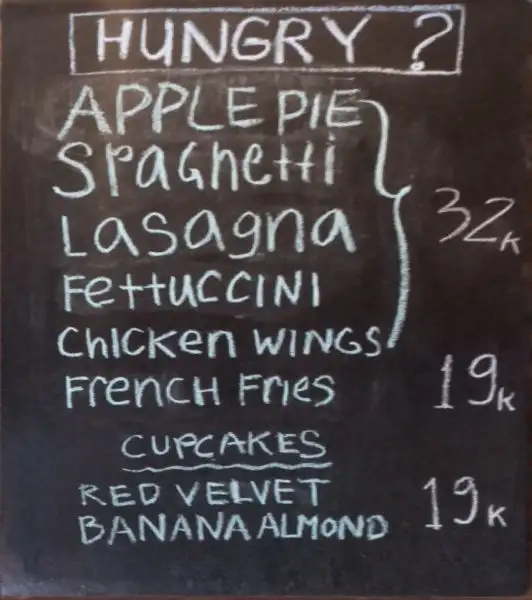 HUNGRY ?
APPLE PIE
SPaGHeTTi
Lasagna 32K
FeTTUCCINI
CHICKen WINGS
FrenCH Fries 19K
CUPCAKES
RED VELVET 19K
BANANA ALMOND